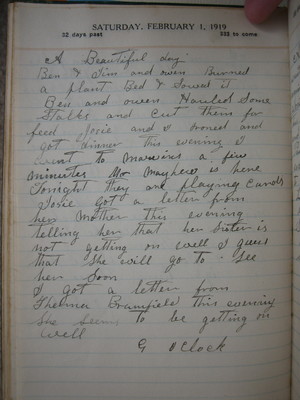 SATURDAY, FEBRUARY 1, 1919
32 days past 333 to come
A Beautiful day
Ben & Jim and owen Burned
a plant Bed & Sowed it
Ben and owen Hauled Some
Stalks and Cut them for
feed Josie and I Ironed and
got dinner this evening I
went to a few
minutes Mr Mayhew is here
Tonight they are playing Cards
Josie got a letter from
her Mother This evening
telling her that her Sister is
not getting on well I guess
that She will go to See
her Soon
I got a letter from
Thelma this evening
She Seems to be getting on
well
O'Clock